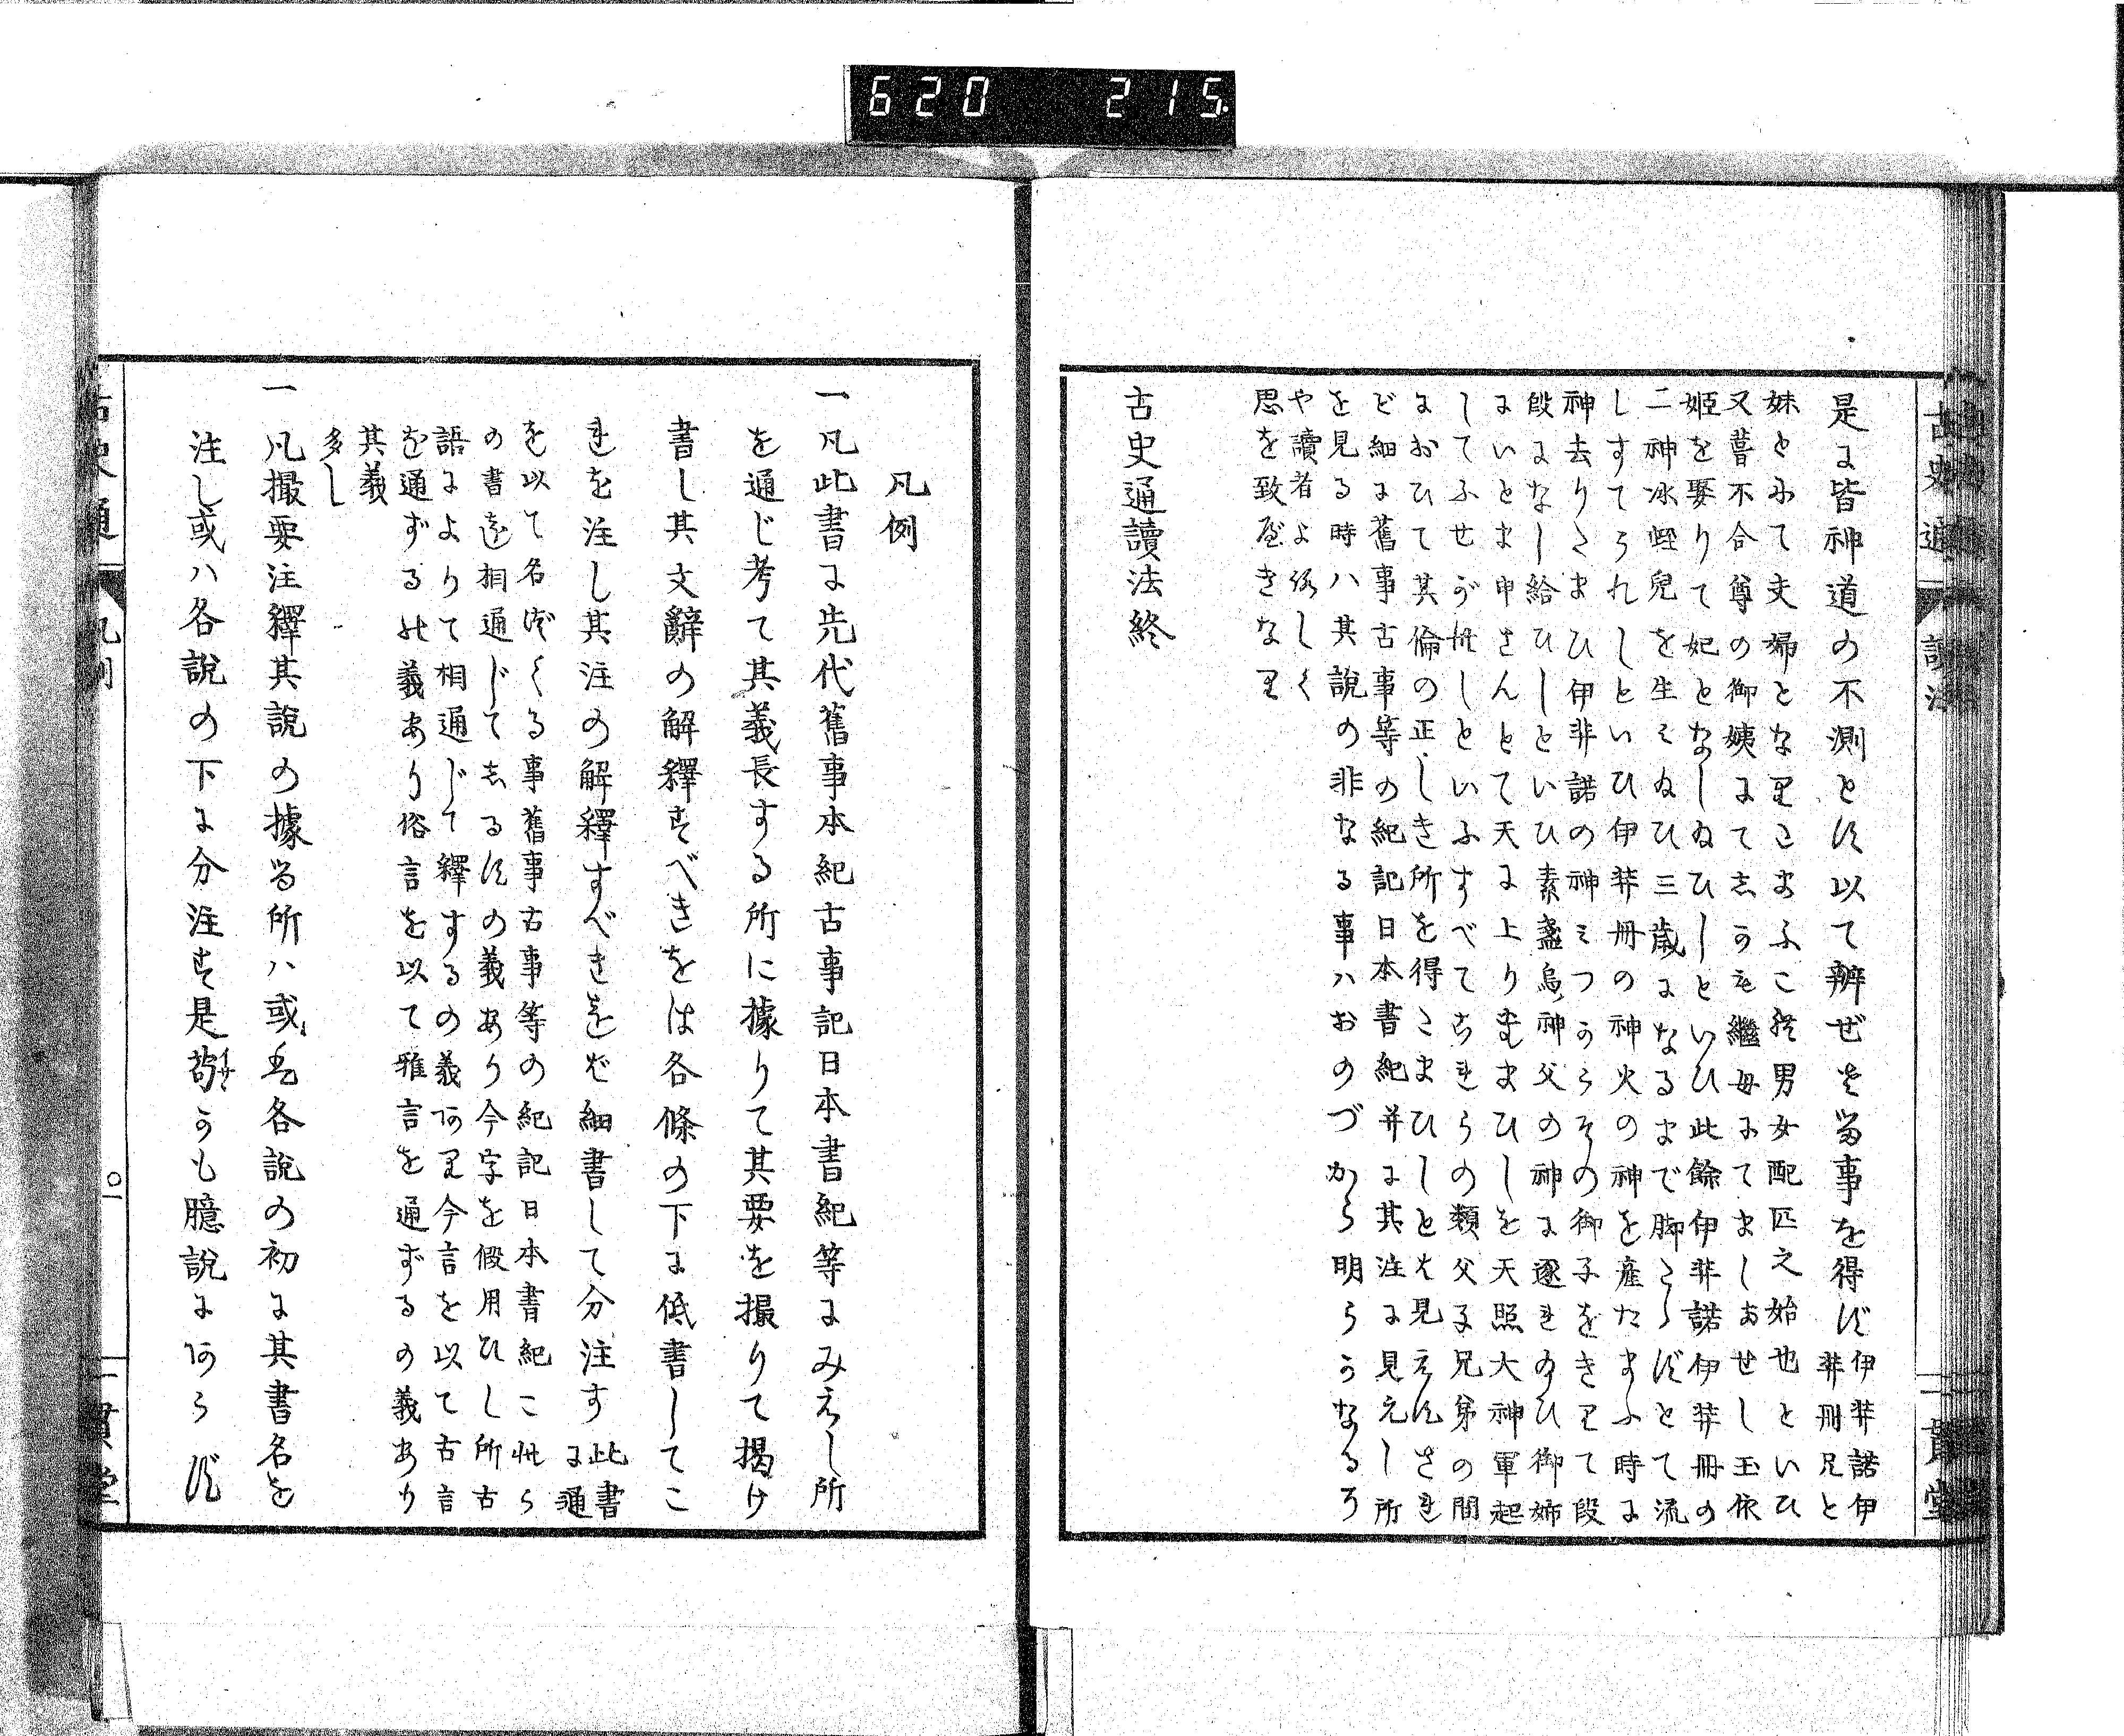 620 215
古史通
讀法
一貫堂
是に皆神道の不測とす以て辨ぜず當事を得ず伊弉諾伊弉冊兄と
妹とにて夫婦となりこまふこれ男女配匹之始也といひ
又葺不合尊の御姨にてしかも繼母にてましませし玉依
姫を娶りて妃となし給ひしといひ此餘伊弉諾伊弉冊の
二神冰蛭兒を生み給ひ三歳になるまで脚たゝずとて流
しすてられしといひ伊弉冊の神火の神を産たまふ時に
神去りたまひ伊弉諾の神みつからその御子をきりて段
段になし給ひしといひ素盞烏神父の神に逐れ給ひ御姉
にいとま申さんとて天に上りたまひしを天照大神軍起
してふせがれしといふすべてこれらの類父子兄弟の間
におひて其倫の正しき所を得たまひしとは見えずされ
ど細に舊事古事等の紀記日本書紀并に其注に見えし所
を見る時ハ其説の非なる事ハおのづから明らかなるろ
や讀者よろしく
思を致すべきなり
古史通讀法終
凡例
一凡此書に先代舊事本紀古事記日本書紀等にみえし所
を通じ考て其義長する所に據りて其要を撮りて揭け
書し其文辭の解釋すべきをは各條の下に低書してこ
れを注し其注の解釋すべきをば細書して分注す此書に通
を以て名づくる事舊事古事等の紀記日本書紀これら
の書を相通じてしるすの義あり今字を假用ひし所古
語によりて相通じて釋するの義あり今言を以て古言
を通ずるの義あり俗言を以て雅言を通ずるの義あり
其義
多し
一凡撮要注釋其説の據る所ハ或ハ各説の初に其書名を
注し或ハ各説の下に分注す是苟イサヽかも臆説にあらず
古史通
凡例
〇一
一貫堂